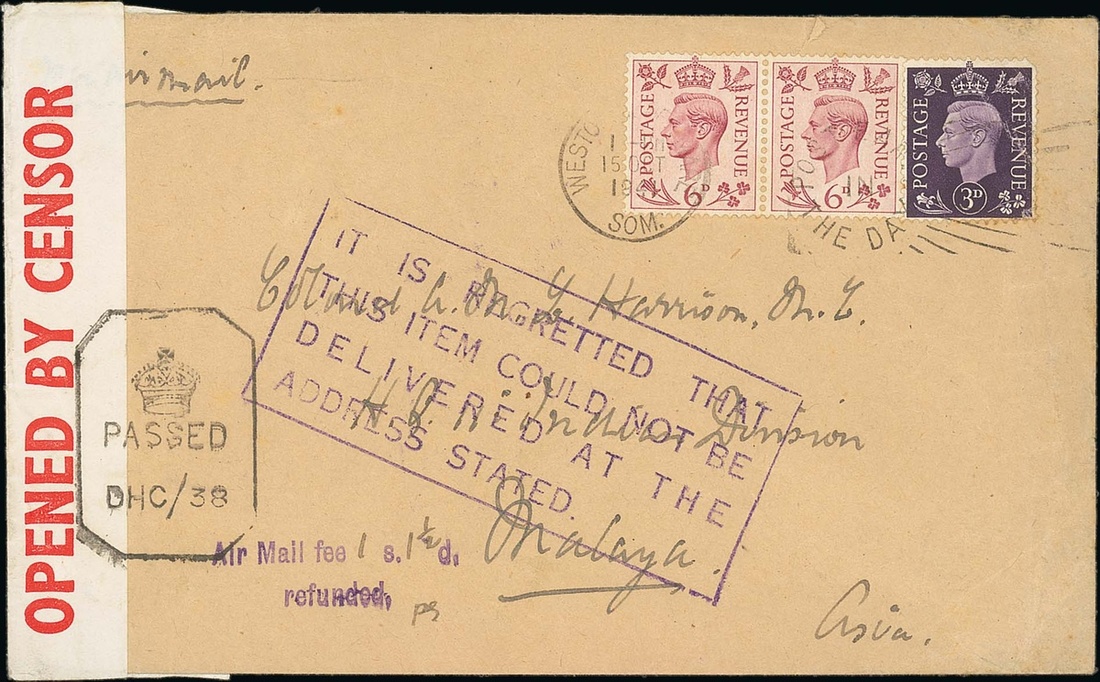 OPENED BY CENSOR
Air mail.
POSTAGE REVENUE
6D
POSTAGE REVENUE
6D
POSTAGE REVENUE
3D
WESTO
15 OCT
19
SOM.
IN
THE DA
IT IS REGRETTED THAT
THIS ITEM COULD NOT BE
DELIVERED AT THE
ADDRESS STATED.
Colonel A. M. L. Harrison, M.C.
H.Q. 11 Indian Division
Malaya.
Asia.
PASSED
DHC/38
Air Mail fee 1 s. 1½ d.
refunded.